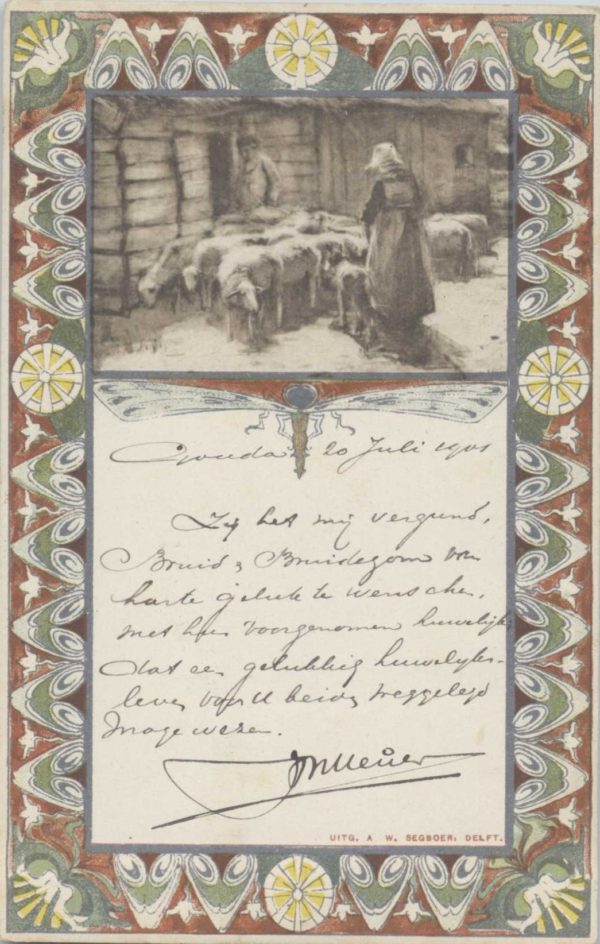 Gouda 20 Juli 1901
Zij het mij vergund,
Bruid & Bruidegom van
harte geluk te wenschen,
met hun voorgenomen huwelijk
dat een gelukkig huwelijks-
leven voor U beiden weggelegd
moge wezen.
UITG. A. W. SEGBOER, DELFT.